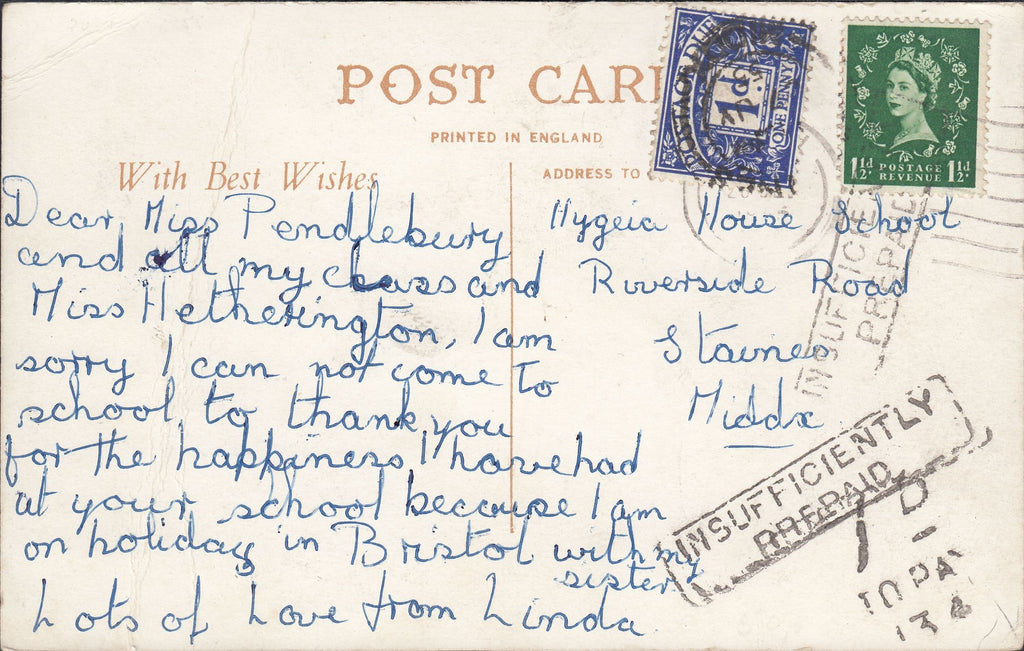 POST CAR
PRINTED IN ENGLAND
With Best Wishes
ADDRESS TO
POSTAGE DUE
1d.
ONE PENNY
1½d POSTAGE REVENUE 1½d.
Dear Miss Pendlebury
and all my class and
Miss Hetherington, I am
sorry I can not come to
school to thank you
for the happiness I have had
at your school because I am
on holiday in Bristol with my
sister
Lots of Love from Linda
Hygeia House School
Riverside Road
Staines
Middx
INSUFFICIENTLY
PREPAID
INSUFFICIENTLY
PREPAID
1 D
TO PAY
134